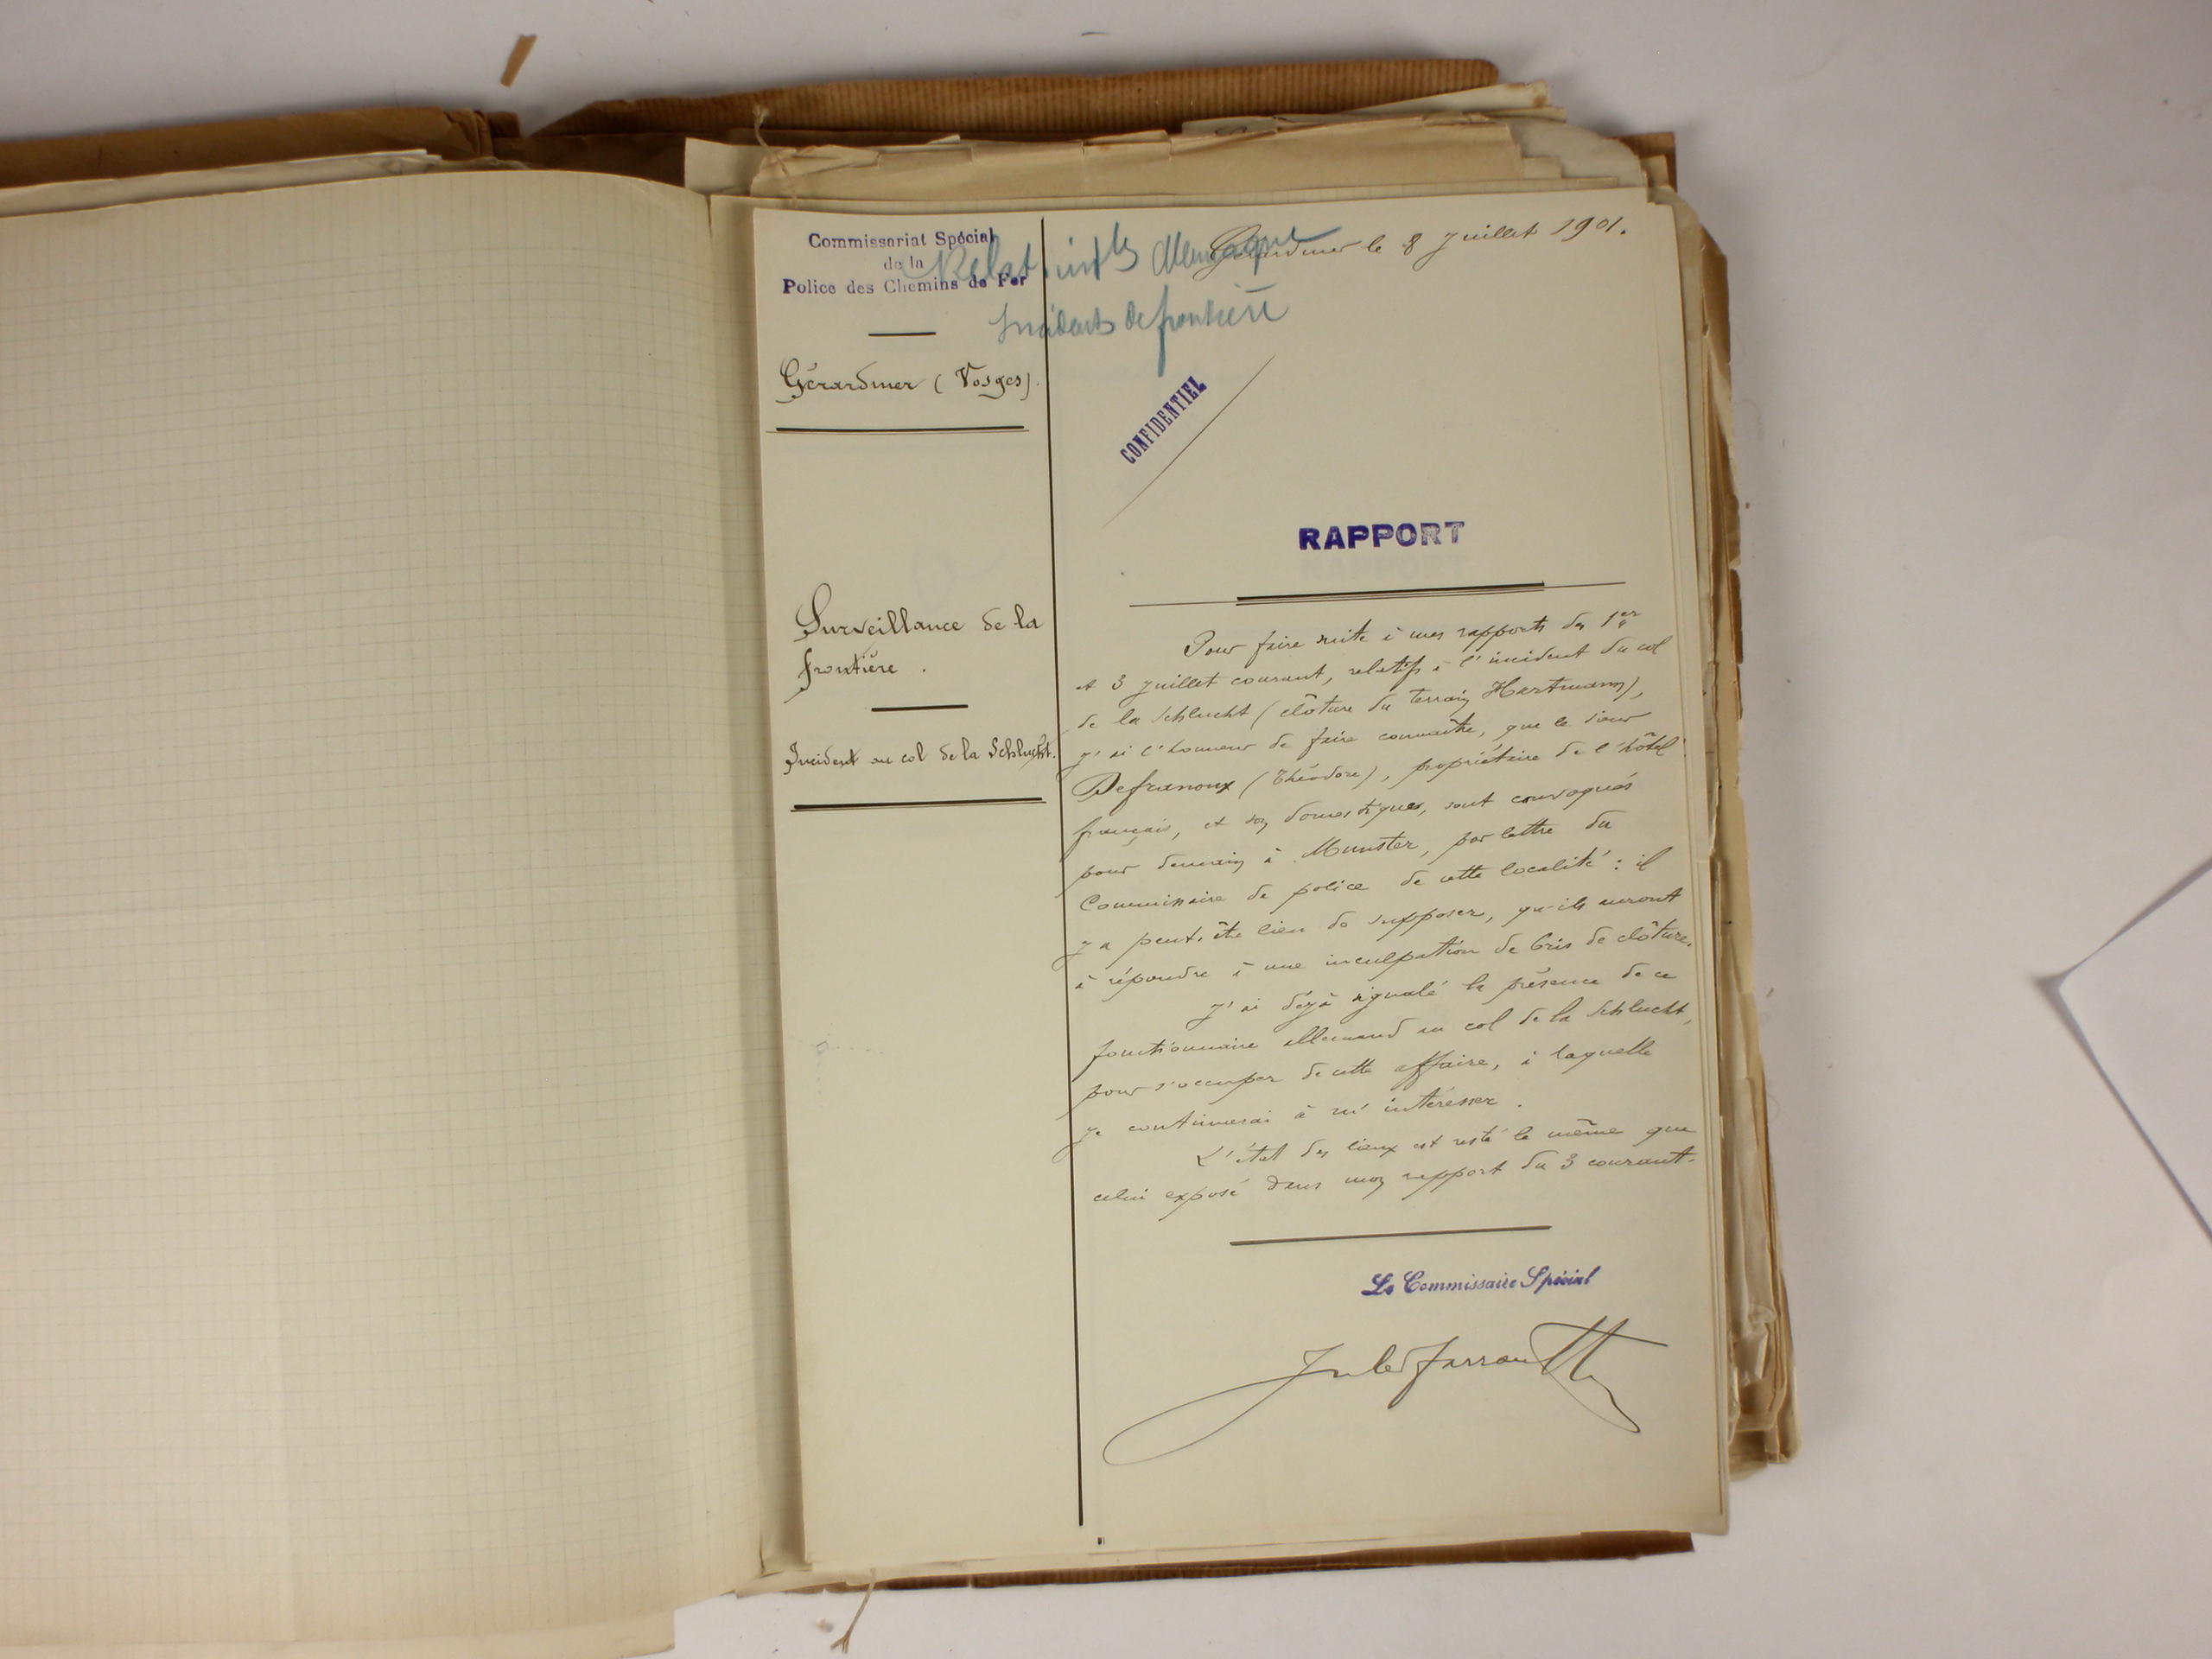 Commissariat Spécial
de la
Police des Chemins de Fer
Gérardmer (Vosges).
Surveillance de la
frontière.
Incident au col de la Schlucht.
Gérardmer le 8 Juillet 1901.
Allemagne
Incidents de frontière
CONFIDENTIEL
RAPPORT
Pour faire suite à mes rapports des 1er
et 3 Juillet courant, relatifs à l'incident du col
de la Schlucht (clôture du terrain Hartmann),
j'ai l'honneur de faire connaître, que le sieur
Defranoux (Théodore), propriétaire de l'hôtel
français, et son domestique, sont convoqués
pour demain à Munster, par lettre du
Commissaire de police de cette localité : il
y a peut-être lieu de supposer, qu'ils auront
à répondre à une inculpation de bris de clôture.
J'ai déjà signalé la présence de ce
fonctionnaire allemand au col de la Schlucht,
pour s'occuper de cette affaire, à laquelle
je continuerai à m'intéresser.
L'état des lieux est resté le même que
celui exposé dans mon rapport du 3 courant.
Le Commissaire Spécial